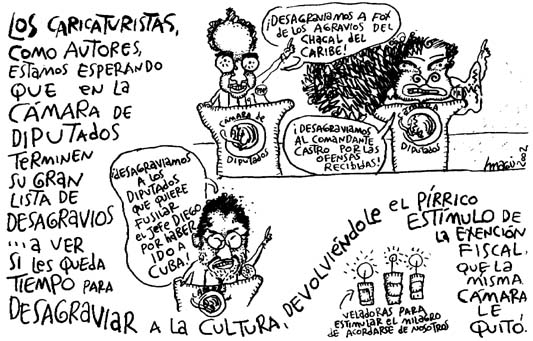 LOS CARICATURISTAS,
COMO AUTORES,
ESTAMOS ESPERANDO
QUE EN LA
CÁMARA DE
DIPUTADOS
TERMINEN
SU GRAN
LISTA DE
DESAGRAVIOS
...A VER
SI LES QUEDA
TIEMPO PARA
DESAGRAVIAR A LA CULTURA, DEVOLVIÉNDOLE EL PÍRRICO
ESTÍMULO DE
LA EXENCIÓN
FISCAL,
QUE LA
MISMA
CÁMARA
LE
QUITÓ.
¡DESAGRAVIAMOS A FOX
DE LOS AGRAVIOS DEL
CHACAL DEL
CARIBE!
CÁMARA DE
DIPUTADOS
¡DESAGRAVIAMOS
AL COMANDANTE
CASTRO POR LAS
OFENSAS
RECIBIDAS!
CÁMARA
DE
DIPUTADOS
MAGÚ-2002
¡DESAGRAVIAMOS
A LOS
DIPUTADOS
QUE QUIERE
FUSILAR
EL JEFE DIEGO
POR HABER
IDO A
CUBA!
VELADORAS PARA
ESTIMULAR EL MILAGRO
DE ACORDARSE DE NOSOTROS